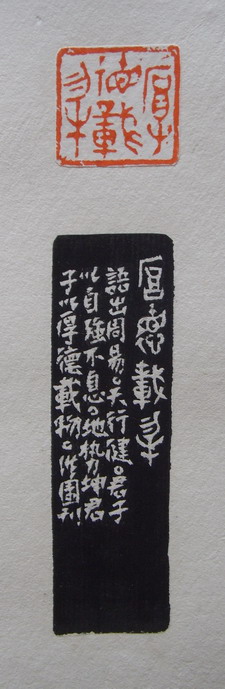 厚德載物
厚悳載物
語出周易。天行健。君子
以自強不息。地勢坤君
子以厚德載物。作刊